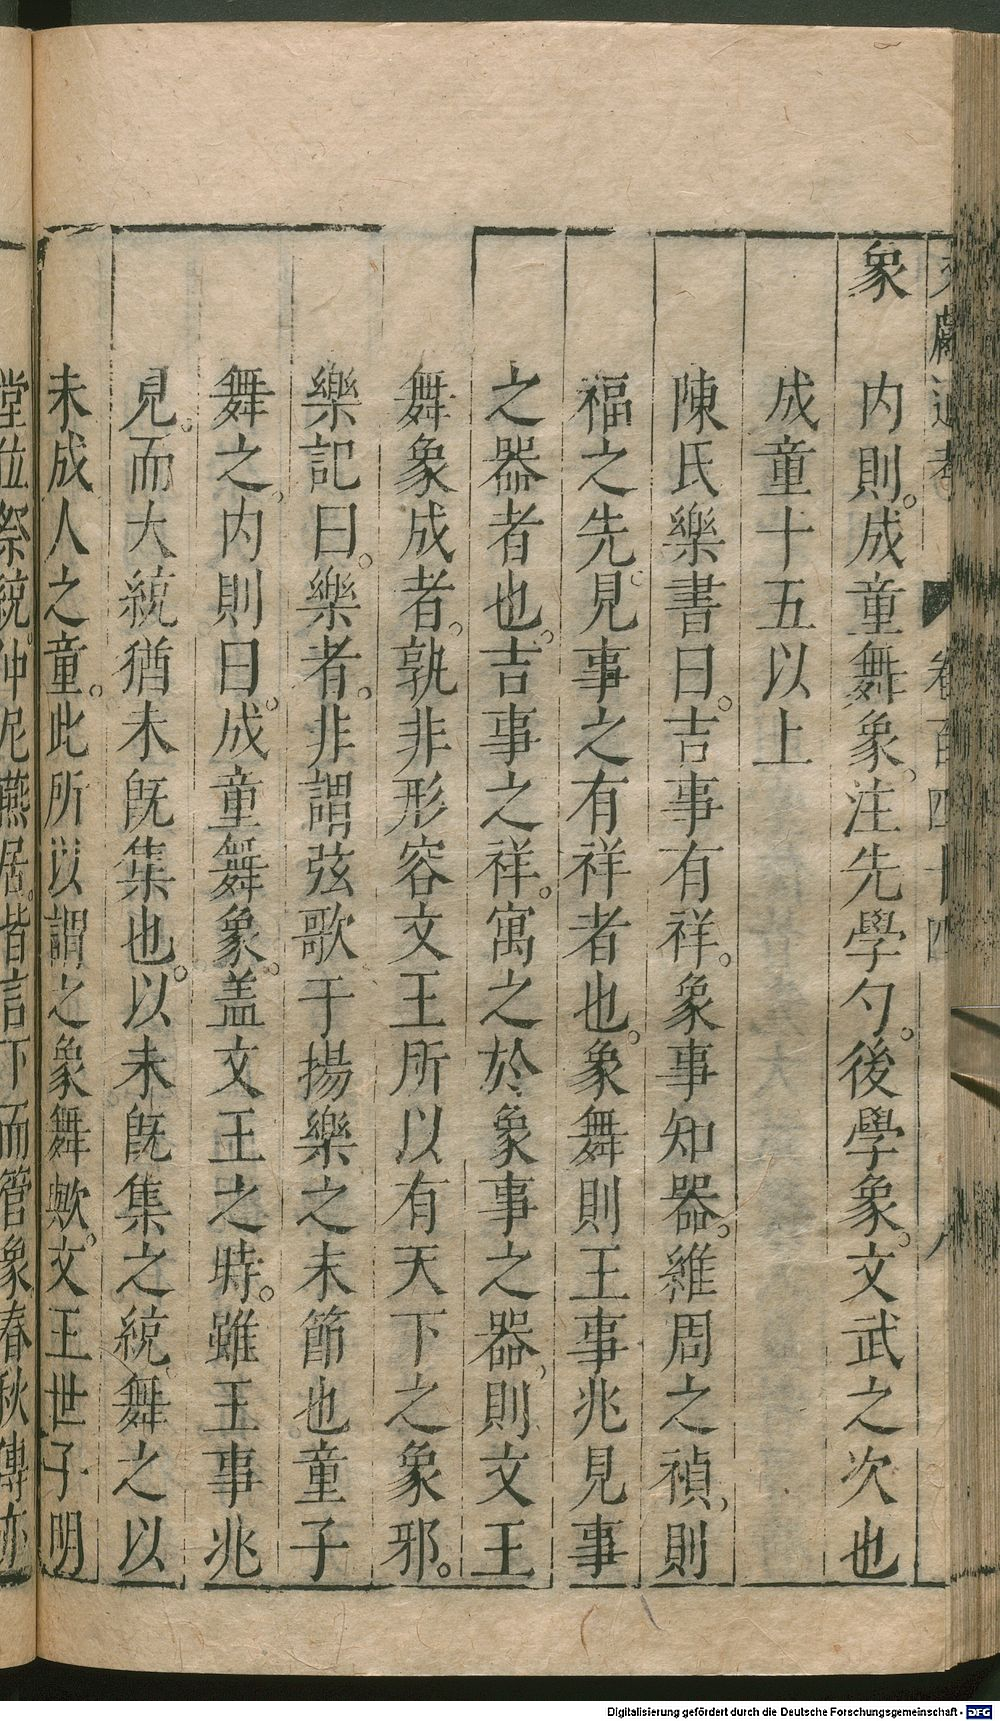 文獻通考 卷百四十四 八
象 内則。成童舞象。注先學勺。後學象。文武之次也
成童十五以上
陳氏樂書曰。吉事有祥。象事知器。維周之禎，則
福之先。見事之有祥者也。象舞則王事兆見事
之器者也。吉事之祥。寓之於象事之器，則文王
舞象成者。孰非形容文王所以有天下之象邪。
樂記曰。樂者。非謂弦歌干揚樂之末節也童子
舞之。内則曰。成童舞象。盖文王之時。雖王事兆
見。而大統猶未旣集也。以未旣集之統。舞之以
未成人之童。此所以謂之象舞歟。文王世子明
堂位祭統。仲尼燕居。皆言下而管象春秋傳亦
Digitalisierung gefördert durch die Deutsche Forschungsgemeinschaft - DFG